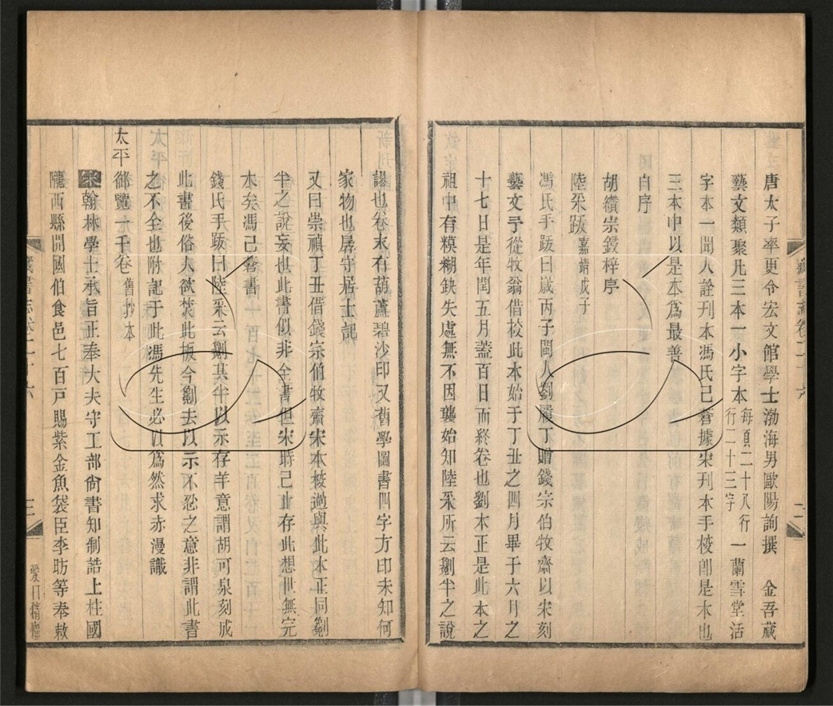 唐太子率更令宏文館學士渤海男歐陽詢撰 金吾藏
藝文類聚凡三本一小字本每頁二十八行行二十三字一蘭雪堂活
字本一聞人詮刊本馮氏己蒼據宋刊本手校即是本也
三本中以是本爲最善
自序
胡纘宗鋟梓序
陸采跋嘉靖戊子
馮氏手跋曰歲丙子閩人劉履丁贈錢宗伯牧齋以宋刻
藝文予從牧翁借校此本始于丁丑之四月畢于六月之
十七日是年閏五月蓋百日而終卷也劉本正是此本之
祖中有糢糊缺失處無不因襲始知陸采所云劖半之說
謬也卷末有葫蘆碧沙印又舊學圖書四字方印未知何
家物也孱守居士記
又曰崇禎丁丑借錢宗伯牧齋宋本校過與此本正同劖
半之說妄也此書似非全書但宋時己止存此想世無完
本矣馮己蒼書
錢氏手跋曰陸采云劖其半以示存羊意謂胡可泉刻成
此書後俗夫欲焚此板今劖去以示不忍之意非謂此書
之不全也附記于此馮先生必以爲然求赤漫識
太平御覽一千卷舊抄本
宋翰林學士承旨正奉大夫守工部尙書知制誥上柱國
隴西縣開國伯食邑七百戸賜紫金魚袋臣李昉等奉敕